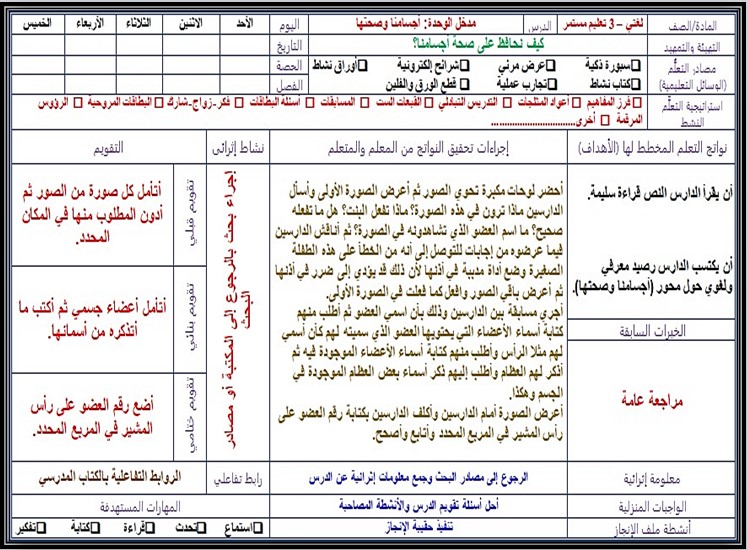 المادة/الصف
لغتي – 3 تعليم مستمر
الدرس
مدخل الوحدة: أجسامنا وصحتها
اليوم
الأحد
الاثنين
الثلاثاء
الأربعاء
الخميس
التهيئة والتمهيد
كيف نحافظ على صحة أجسامنا؟
التاريخ
مصادر التعلُّم
(الوسائل التعليمية)
❑سبورة ذكية
❑عرض مرئي
❑شرائح إلكترونية
❑أوراق نشاط
الحصة
❑كتاب نشاط
❑تجارب عملية
❑ قطع الورق والفلين
الفصل
استراتيجية التعلُّم
النشط
□ فرز المفاهيم □ أعواد المثلجات □ التدريس التبادلي □ القبعات الست □ المسابقات □ أسئلة البطاقات □ فكر-زواج-شارك □ البطاقات المروحية □ الرؤوس
المرقمة □ أخرى......................................
نواتج التعلم المخطط لها (الأهداف)
إجراءات تحقيق النواتج من المعلم والمتعلم
نشاط إثرائي
التقويم
أن يقرأ الدارس النص قراءة سليمة.
أن يكتسب الدارس رصيد معرفي
ولغوي حول محور (أجسامنا وصحتها).
الخبرات السابقة
مراجعة عامة
أحضر لوحات مكبرة تحوي الصور ثم أعرض الصورة الأولى وأسأل
الدارسين ماذا ترون في هذه الصورة؟ ماذا تفعل البنت؟ هل ما تفعله
صحيح؟ ما اسم العضو الذي تشاهدونه في الصورة؟ ثم أناقش الدارسين
فيما عرضوه من إجابات للتوصل إلى أنه من الخطأ على هذه الطفلة
الصغيرة وضع أداة مدببة في أذنها لأن ذلك قد يؤدي إلى ضرر في أذنها
ثم أعرض باقي الصور وافعل كما فعلت في الصورة الأولى.
أجري مسابقة بين الدارسين وذلك بأن اسمي العضو ثم أطلب منهم
كتابة أسماء الأعضاء التي يحتويها العضو الذي سميته لهم كأن أسمي
لهم مثلا الرأس وأطلب منهم كتابة أسماء الأعضاء الموجودة فيه ثم
أذكر لهم العظام وأطلب إليهم ذكر أسماء بعض العظام الموجودة في
الجسم وهكذا.
أعرض الصورة أمام الدارسين وأكلف الدارسين بكتابة رقم العضو على
رأس المشير في المربع المحدد وأتابع وأصحح.
إجراء بحث بالرجوع إلى المكتبة أو مصادر
البحث
تقويم قبلي
أتأمل كل صورة من الصور ثم
أدون المطلوب منها في المكان
المحدد.
تقويم بنائي
أتأمل أعضاء جسمي ثم أكتب ما
أتذكره من أسمائها.
تقويم ختامي
أضع رقم العضو على رأس
المشير في المربع المحدد.
معلومة إثرائية
الرجوع إلى مصادر البحث وجمع معلومات إثرائية عن الدرس
رابط تفاعلي
الروابط التفاعلية بالكتاب المدرسي
الواجبات المنزلية
أحل أسئلة تقويم الدرس والأنشطة المصاحبة
المهارات المستهدفة
أنشطة ملف الإنجاز
تنفيذ حقيبة الإنجاز
❑استماع
❑تحدث
❑قراءة
❑كتابة
❑تفكير